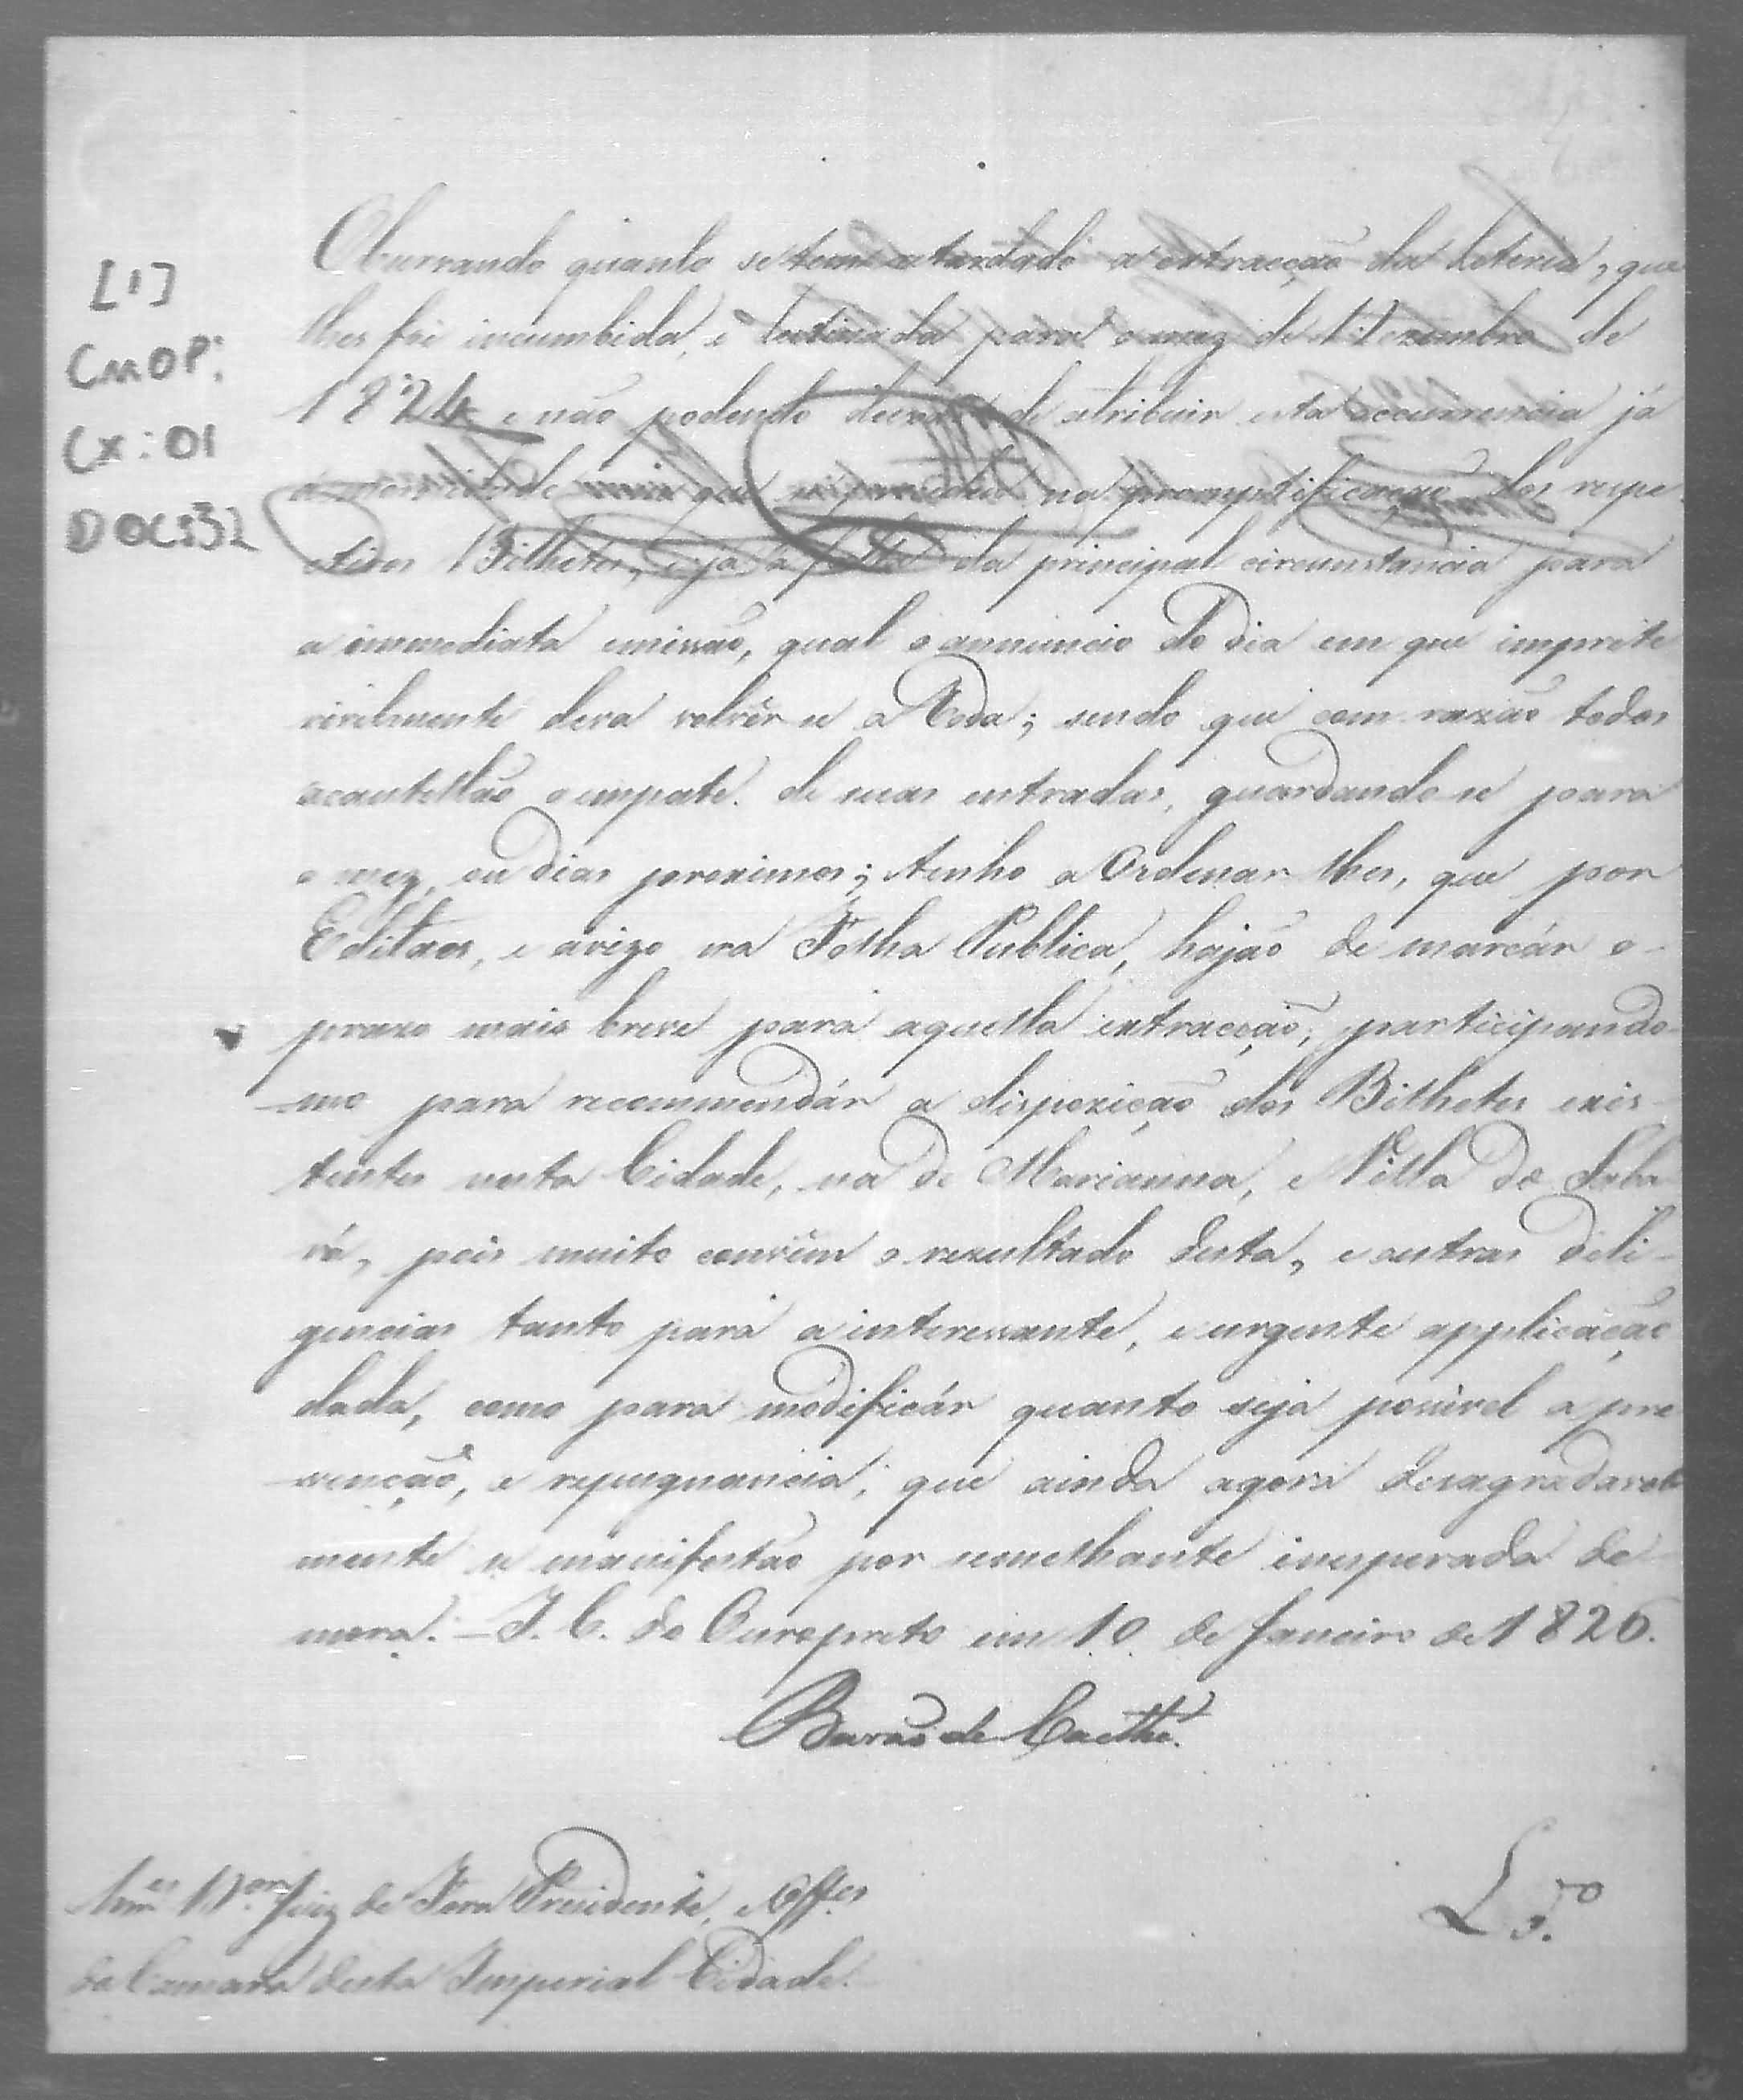 Observando quanto se tem retardado a extracção da Loteria, que
lhes foi incumbida, e destinada para o mez de Dezembro de
1824 e não podendo deixar de atribuir esta occurrencia já
a morosidade na promptificação dos respe
ctivos Bilhetes, e já a falta da principal circunstancia para
a immediata emissão, qual o annuncio do Dia em que imprete
rivelmente deva volvêr se a Roda; sendo que com razão todos
acautellão o empate de suas entradas, guardando-se para
o mez, ou Dias proximos; tenho a Ordenar lhes, que por
Editaes, e avizo na Folha Publica, hajão de marcár o
prazo mais breve para aquella extracção, participando-
mo para recommendár a dispozição dos Bilhetes exis-
tentes nesta Cidade, na de Marianna, e Villa de Saba
rá, pois muito convêm o rezultado desta, e outras Deli-
gencias tanto para a interessante, e urgente applicação
dada, como para modificár quanto seja possivel a pre
venção, e repugnancia, que ainda agora desagradavel
mente se manifestão por semelhante inesperada de-
mora. - I. C. do Ouropreto em 10 de Janeiro de 1826.
Barão de Caethé.
Juiz de Fora Presidente, e Off.es
da Camara desta Imperial Cidade.
[1]
CMOP:
CX: 01
DOC: 32